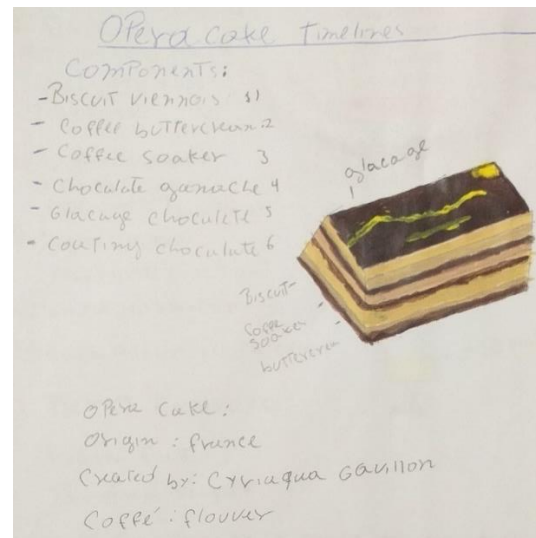 Opera cake timelines
Components:
- Biscuit viennois: 1
- Coffee buttercrean 2
- Coffee soaker 3
- Choculate gamache 4
- Glacage choculete 5
- Couting choculate 6
glacage
Biscuit-
Coffe soaker -
butterereen -
Opera Cake:
Origin: france
Created by: Cyriaqua Gavillon
Coffé: flouver